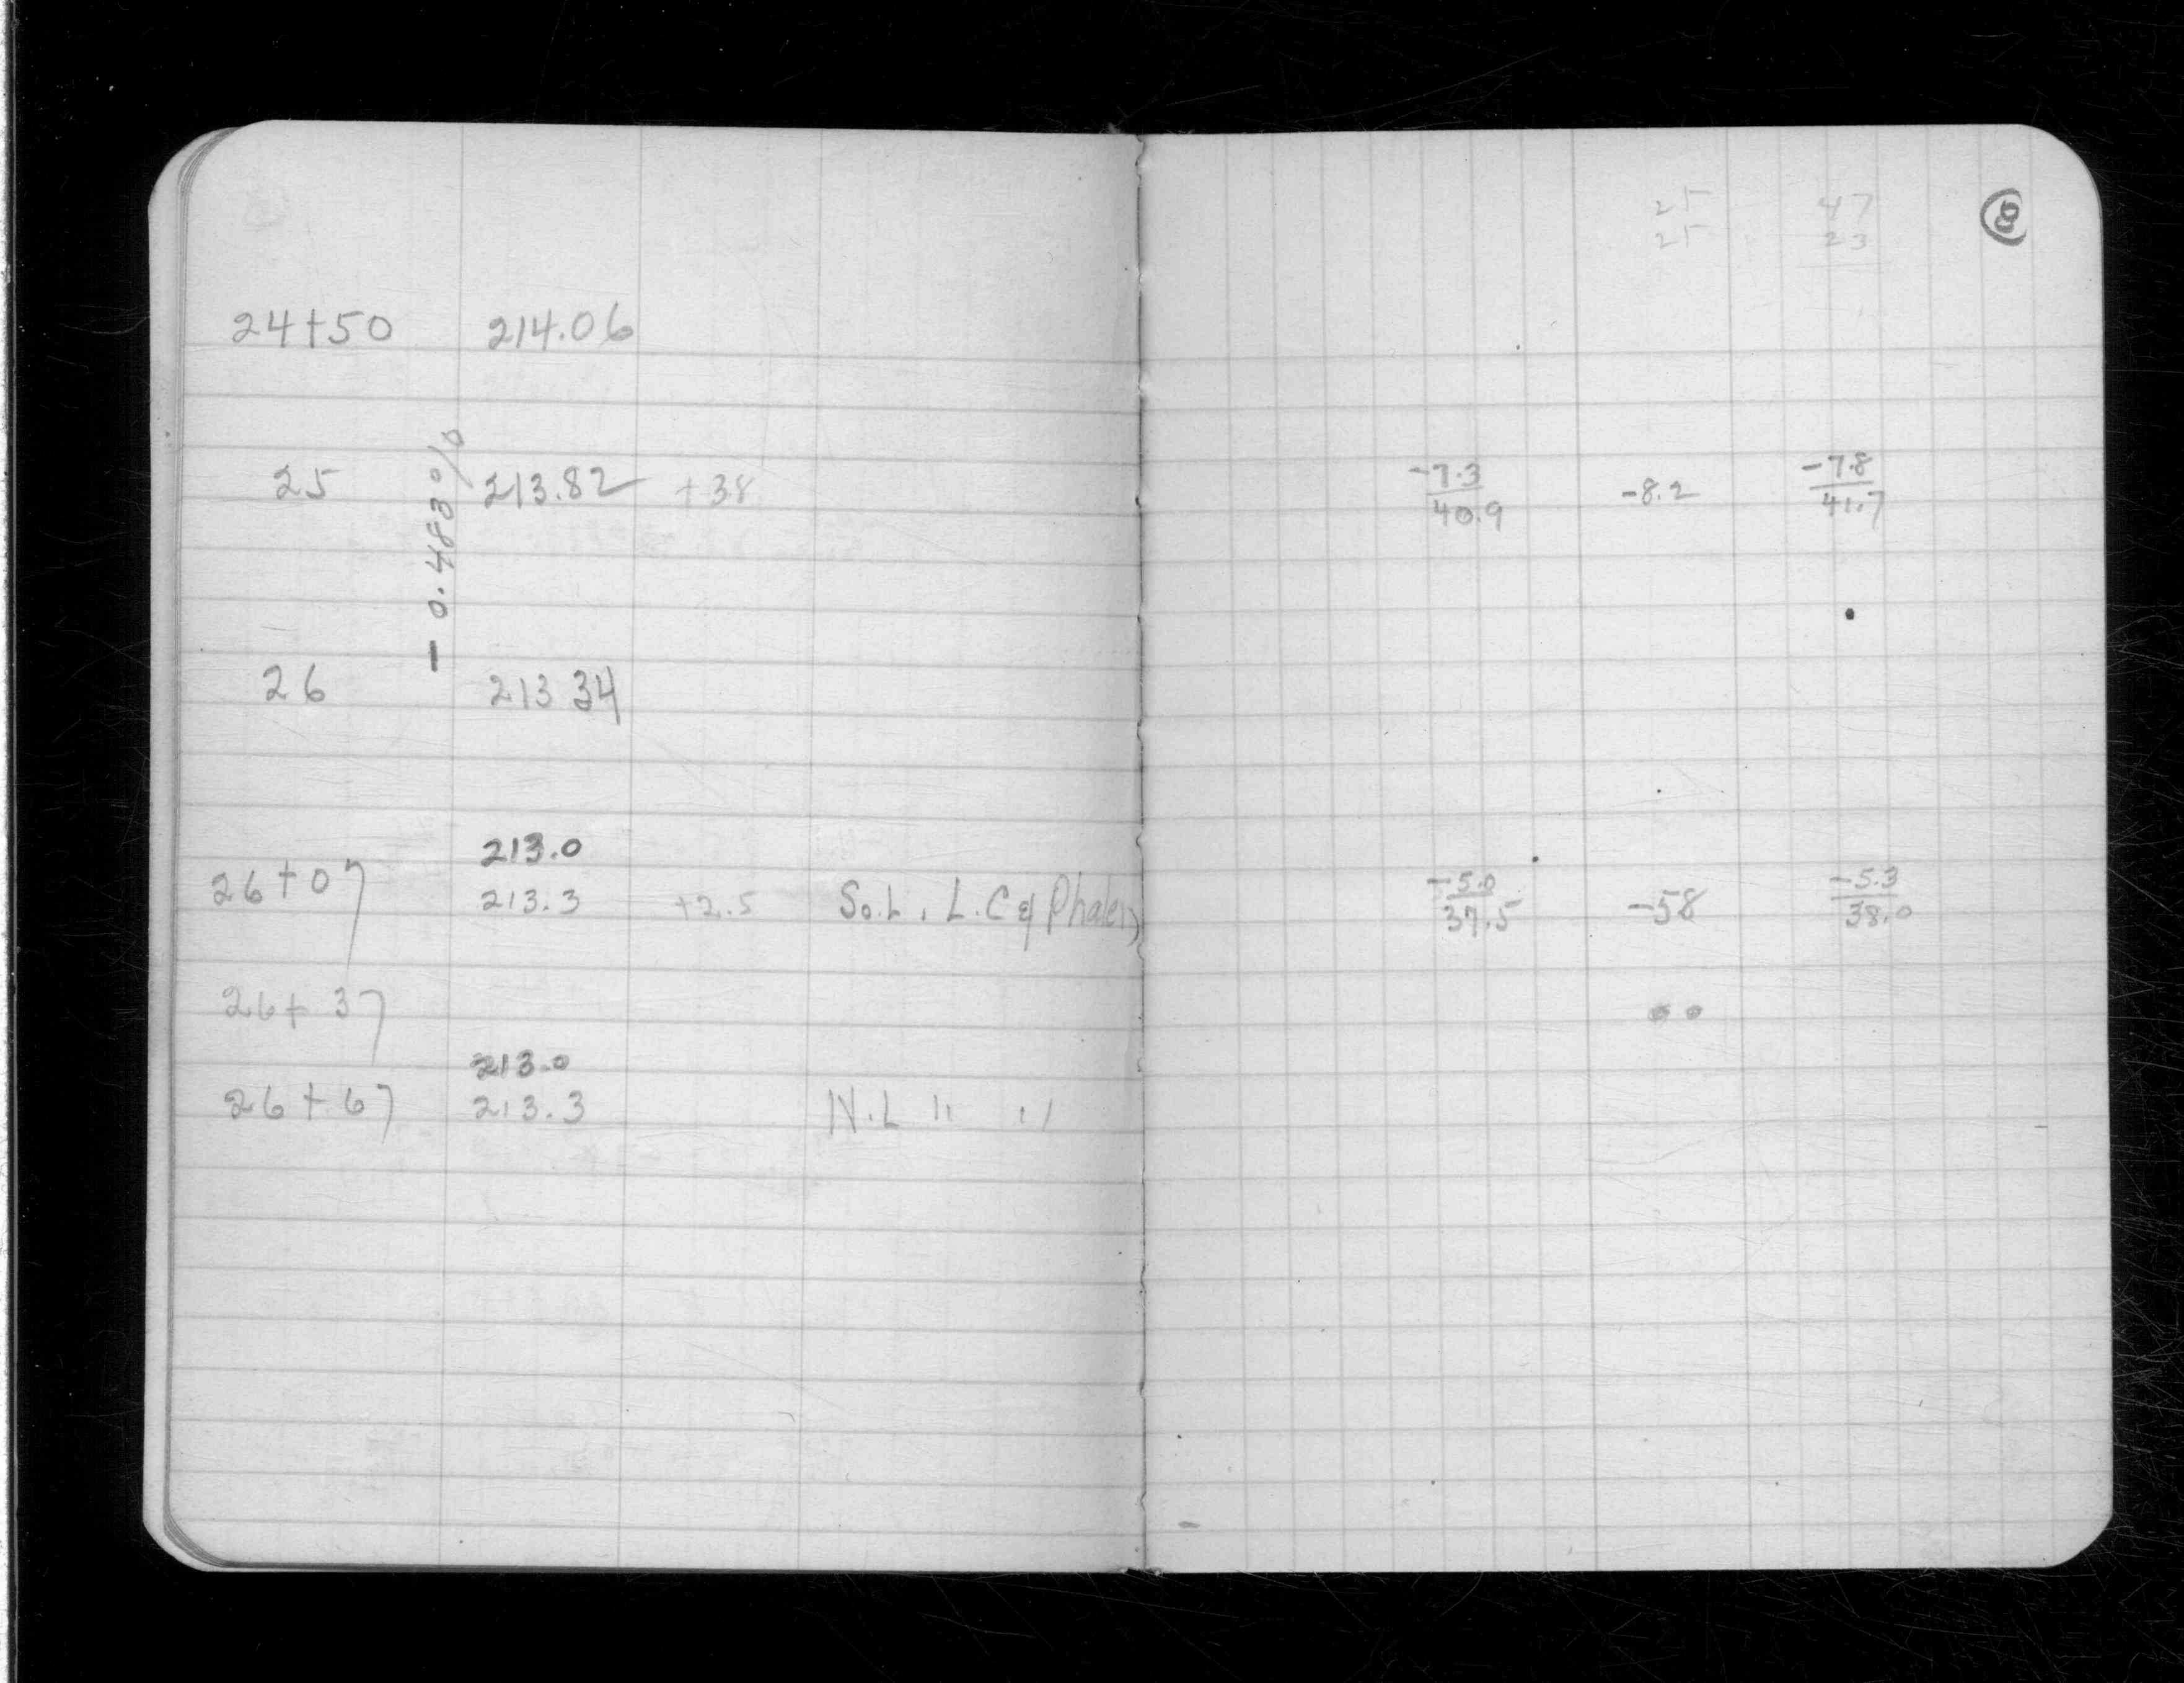 25 47 8
25 23
24+50 214.06
- 0.483%
25 213.82 +38 -7.3/40.9 -8.2 -7.8/41.7
26 213 34
213.0
26+07 213.3 +2.5 So.L. L.C & Phalen -5.0/37.5 -58 -5.3/38.0
26+37
213.0
26+67 213.3 N.L " "